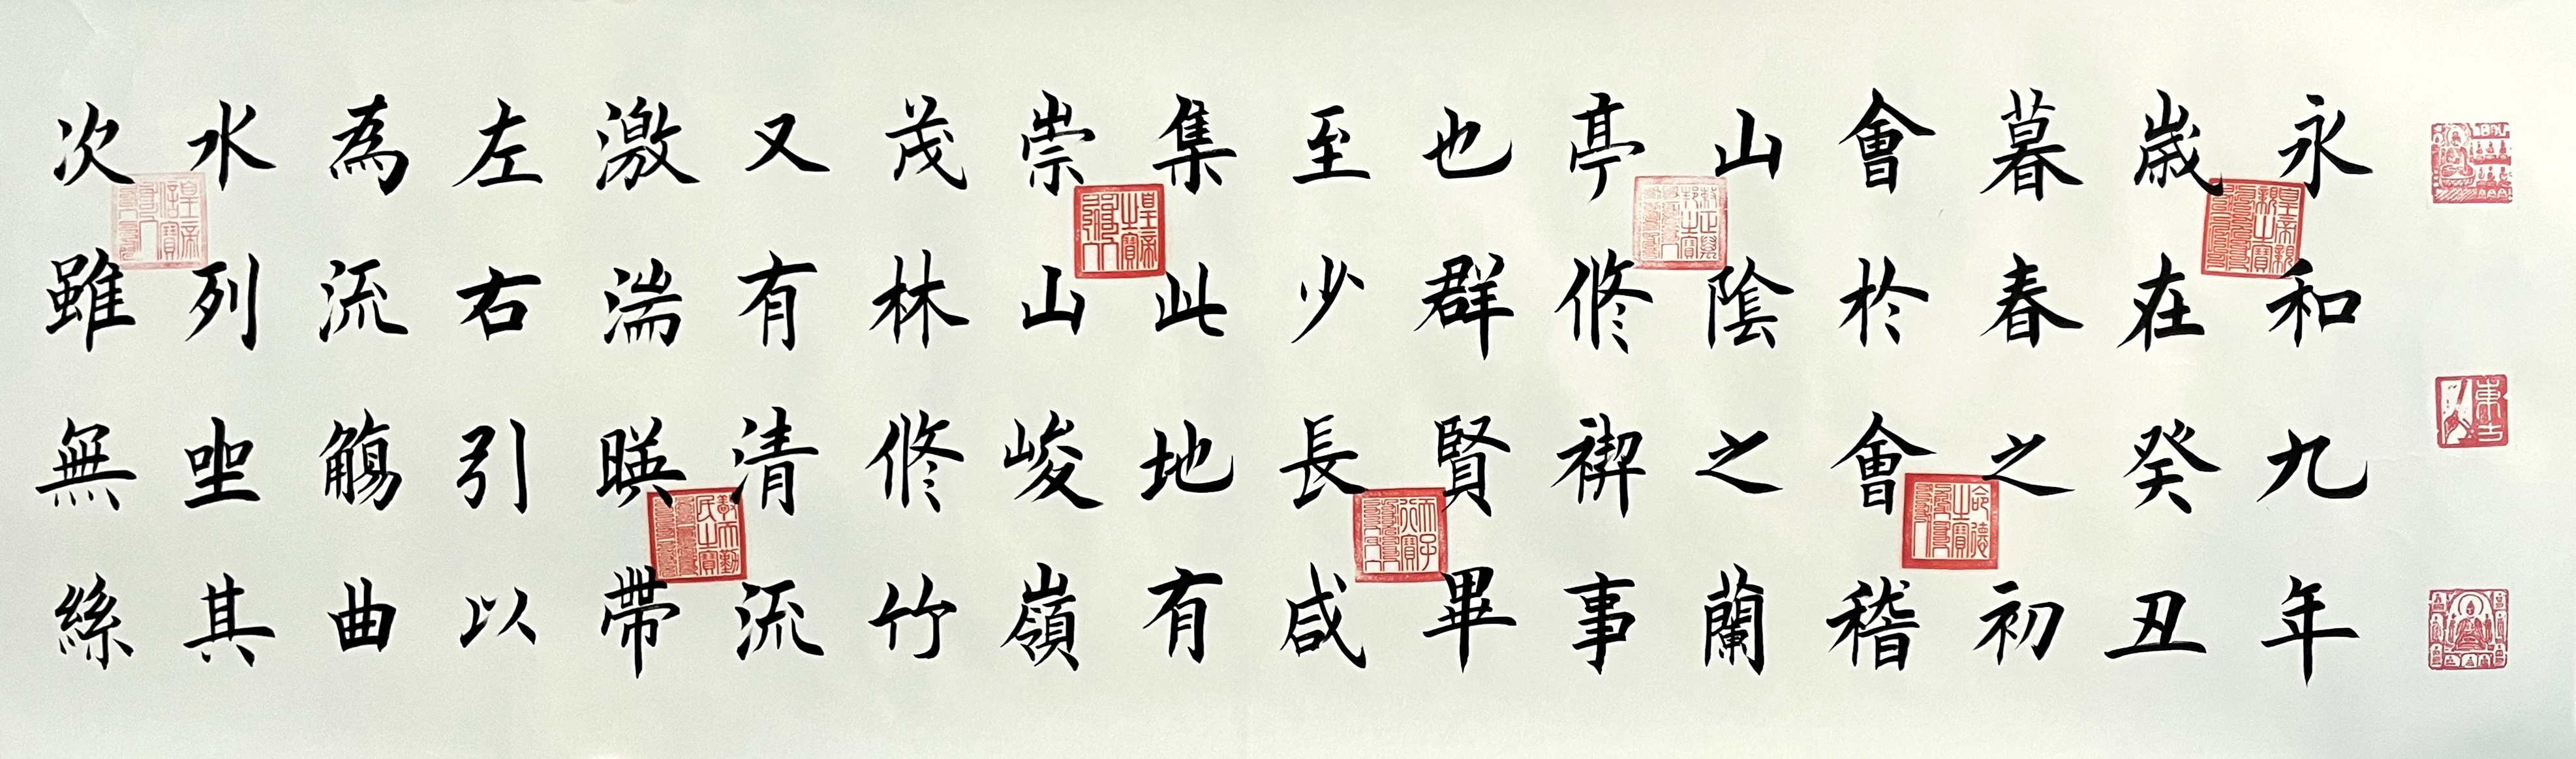 永和九年
歲在癸丑
暮春之初
會於會稽
山陰之蘭
亭修禊事
也群賢畢
至少長咸
集此地有
崇山峻嶺
茂林修竹
又有清流
激湍暎帶
左右引以
為流觴曲
水列坐其
次雖無絲